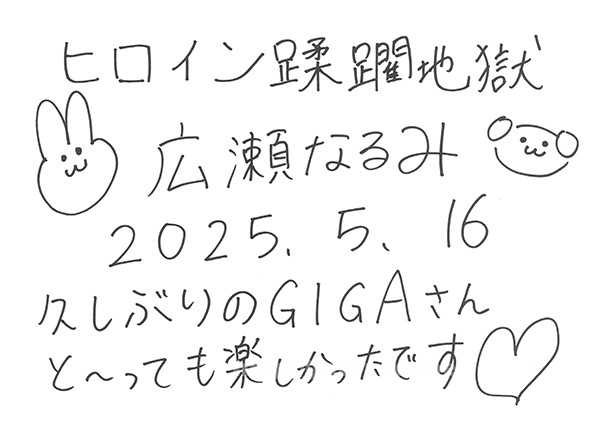 ヒロイン蹂躙地獄
広瀬なるみ
2025. 5. 16
久しぶりのGIGAさん
と〜っても楽しかったです♡